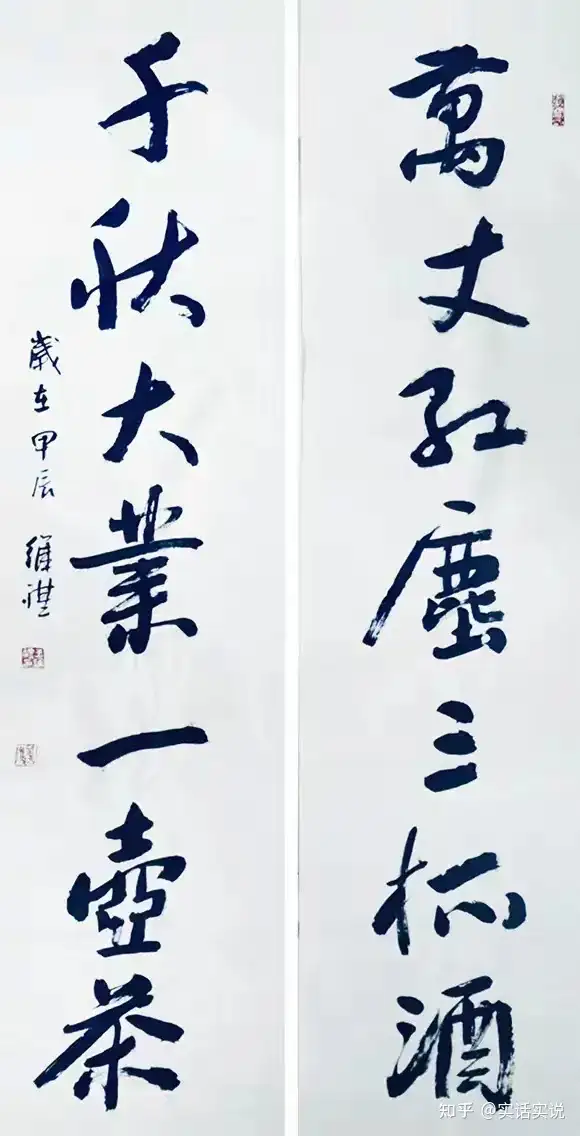 萬丈紅塵三杯酒
千秋大業一壺茶
歲在甲辰 維祺
知乎 @实话实说